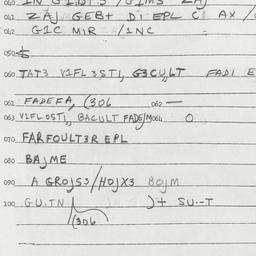 041 ZAJ GEBT DI EPL C AX
042 GIC MIR /INC
050
060 TAT3 V1FL 3ST1, G3CULT FADI E
061 FADEFA, (306 062 —
063 V1FL0ST1, BACULT FADE/M064 O
070 FARFOULT3R EPL
080 BAJME
090 A GROJS3/HOJX3 80JM
100 GU.TN )+ SU.-T
(306